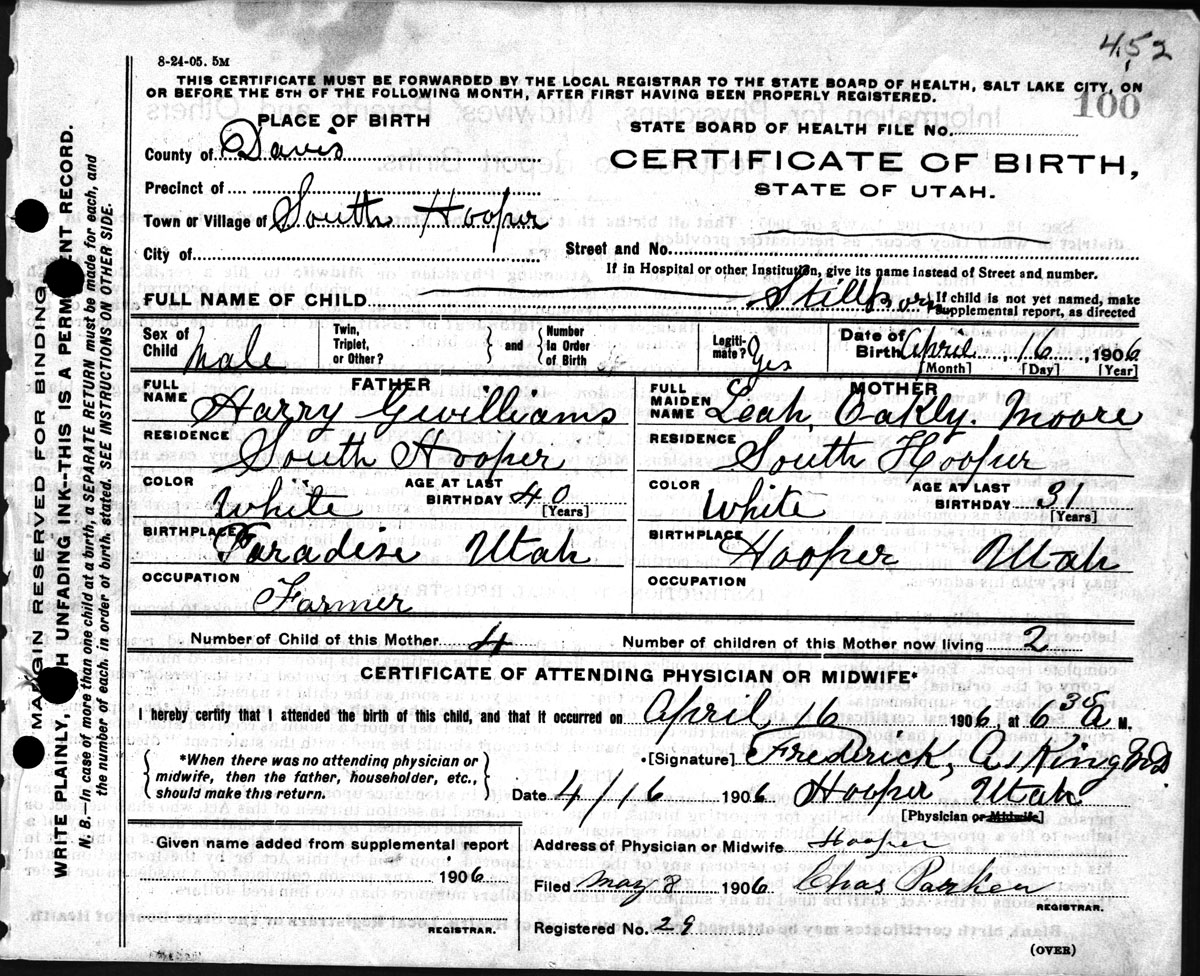 452
8-24-05. 5M
THIS CERTIFICATE MUST BE FORWARDED BY THE LOCAL REGISTRAR TO THE STATE BOARD OF HEALTH, SALT LAKE CITY, ON
OR BEFORE THE 5TH OF THE FOLLOWING MONTH, AFTER FIRST HAVING BEEN PROPERLY REGISTERED.
100
PLACE OF BIRTH
STATE BOARD OF HEALTH FILE No.
County of Davis
CERTIFICATE OF BIRTH,
STATE OF UTAH.
Precinct of
Town or Village of South Hooper
City of
Street and No.
If in Hospital or other Institution, give its name instead of Street and number.
FULL NAME OF CHILD Stillborn { If child is not yet named, make supplemental report, as directed
Sex of Child Male Twin, Triplet, or Other? } and { Number in Order of Birth Legiti-mate? Yes Date of Birth April 16, 1906
[Month] [Day] [Year]
FATHER MOTHER
FULL NAME Harry Gwilliams FULL MAIDEN NAME Leah, Oakly. Moore
RESIDENCE South Hooper RESIDENCE South Hooper
COLOR White AGE AT LAST BIRTHDAY 40 [Years] COLOR White AGE AT LAST BIRTHDAY 31 [Years]
BIRTHPLACE Paradise Utah BIRTHPLACE Hooper Utah
OCCUPATION Farmer OCCUPATION
Number of Child of this Mother 4 Number of children of this Mother now living 2
CERTIFICATE OF ATTENDING PHYSICIAN OR MIDWIFE*
I hereby certify that I attended the birth of this child, and that it occurred on April, 16 1906, at 6 30 A M.
[Signature] Frederick, A. King M.D.
*When there was no attending physician or
midwife, then the father, householder, etc.,
should make this return.
Date 4/16 1906 Hooper Utah
[Physician or Midwife]
Given name added from supplemental report
1906
REGISTRAR.
Address of Physician or Midwife Hooper
Filed May 8 1906 Chas Parker
REGISTRAR.
Registered No. 29
(OVER)
MARGIN RESERVED FOR BINDING
WRITE PLAINLY, WITH UNFADING INK--THIS IS A PERMANENT RECORD.
N. B.--In case of more than one child at a birth, a SEPARATE RETURN must be made for each, and
the number of each, in order of birth, stated. SEE INSTRUCTIONS ON OTHER SIDE.